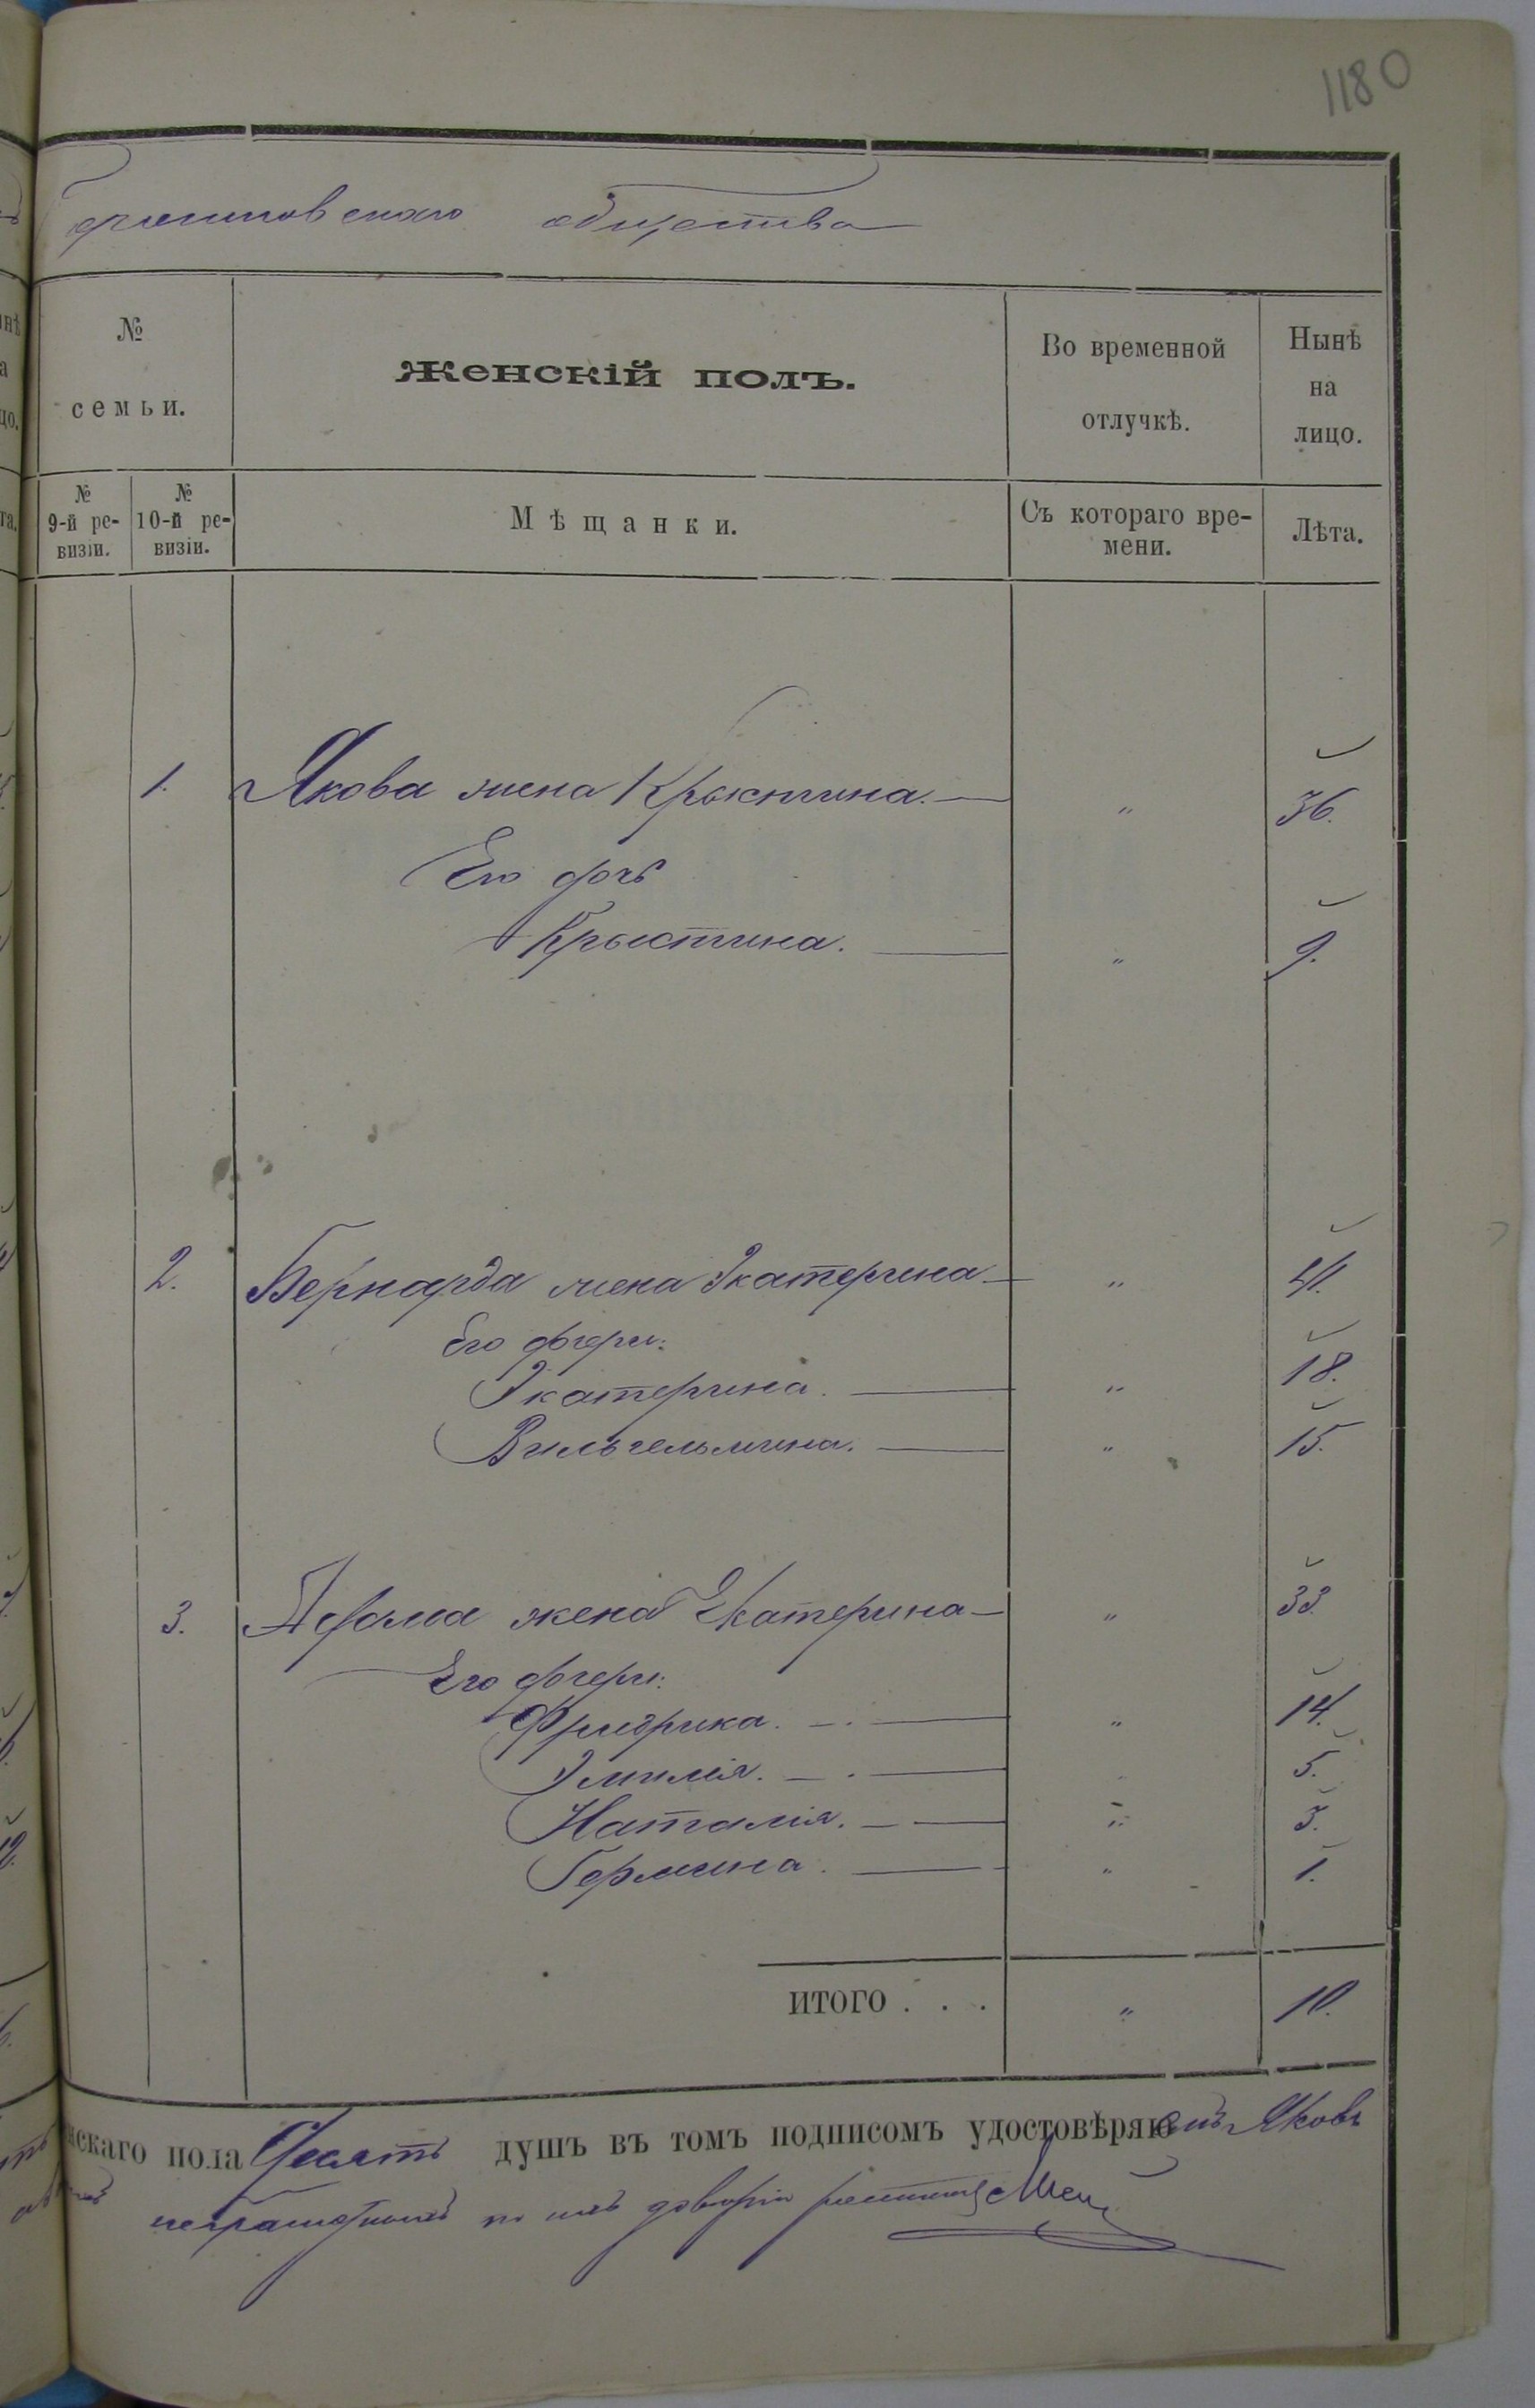 1180
общества
№
семьи.
Женскій полъ.
Во временной
отлучкѣ.
Нынѣ
на
лицо.
№
9-й ре-
визіи.
№
10-й ре-
визіи.
Мѣщанки.
Съ котораго вре-
мени.
Лѣта.
1. Якова жена Крыстина. — " 36.
Его дочь
Крыстина. — " 9.
2. Бернарда жена Екатерина — " 41.
Его дочери:
Екатерина. — " 18.
Вильгельмина. — " 15.
3. Адама жена Екатерина — " 33
Его дочери:
Фридрика. — " 14.
Эмилія. — 5.
Наталія. — " 3.
Гермина. — " 1.
ИТОГО . . . " 10.
нскаго пола Десять душъ въ томъ подписомъ удостовѣряю Яковъ
неграмотныхъ по ихъ